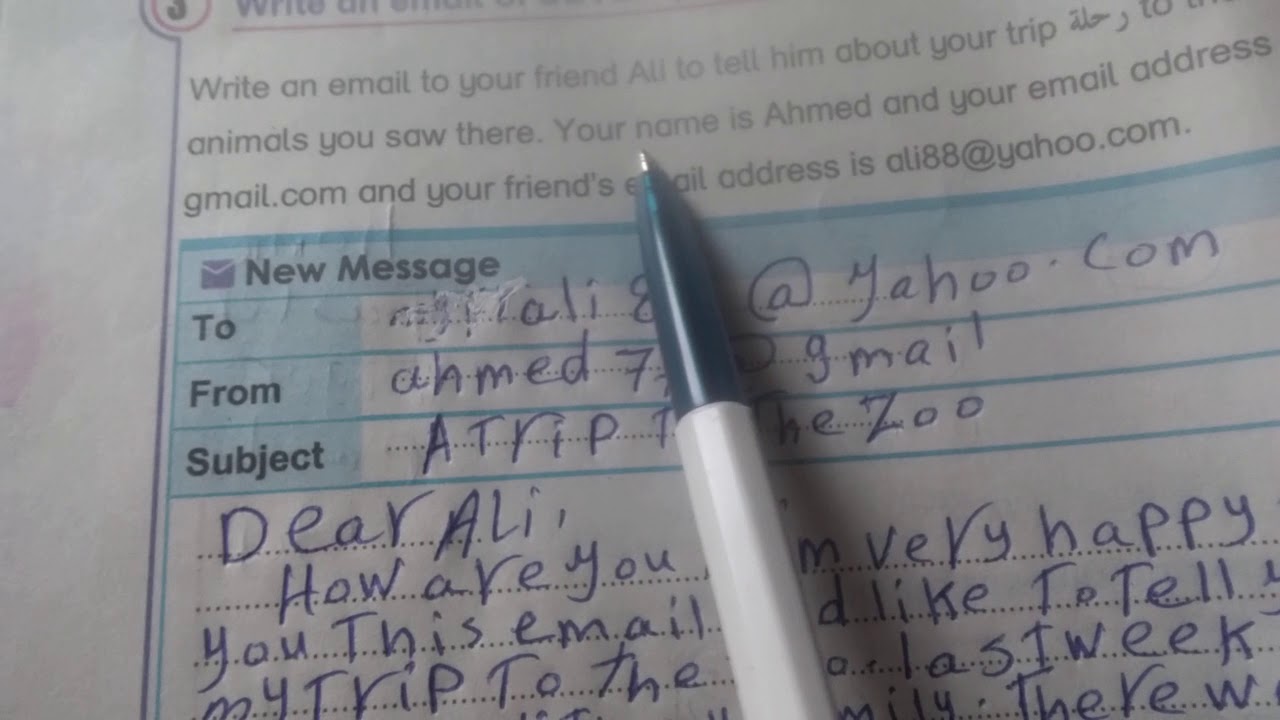 3 Write an email
Write an email to your friend Ali to tell him about your trip رحلة to
animals you saw there. Your name is Ahmed and your email address
gmail.com and your friend's email address is ali88@yahoo.com.
New Message
To ali 8 @ yahoo.com
From ahmed 7 @ gmail
Subject A Trip The Zoo
Dear Ali,
How are you very happy
you This email like To Tell
my Trip To The last week
There